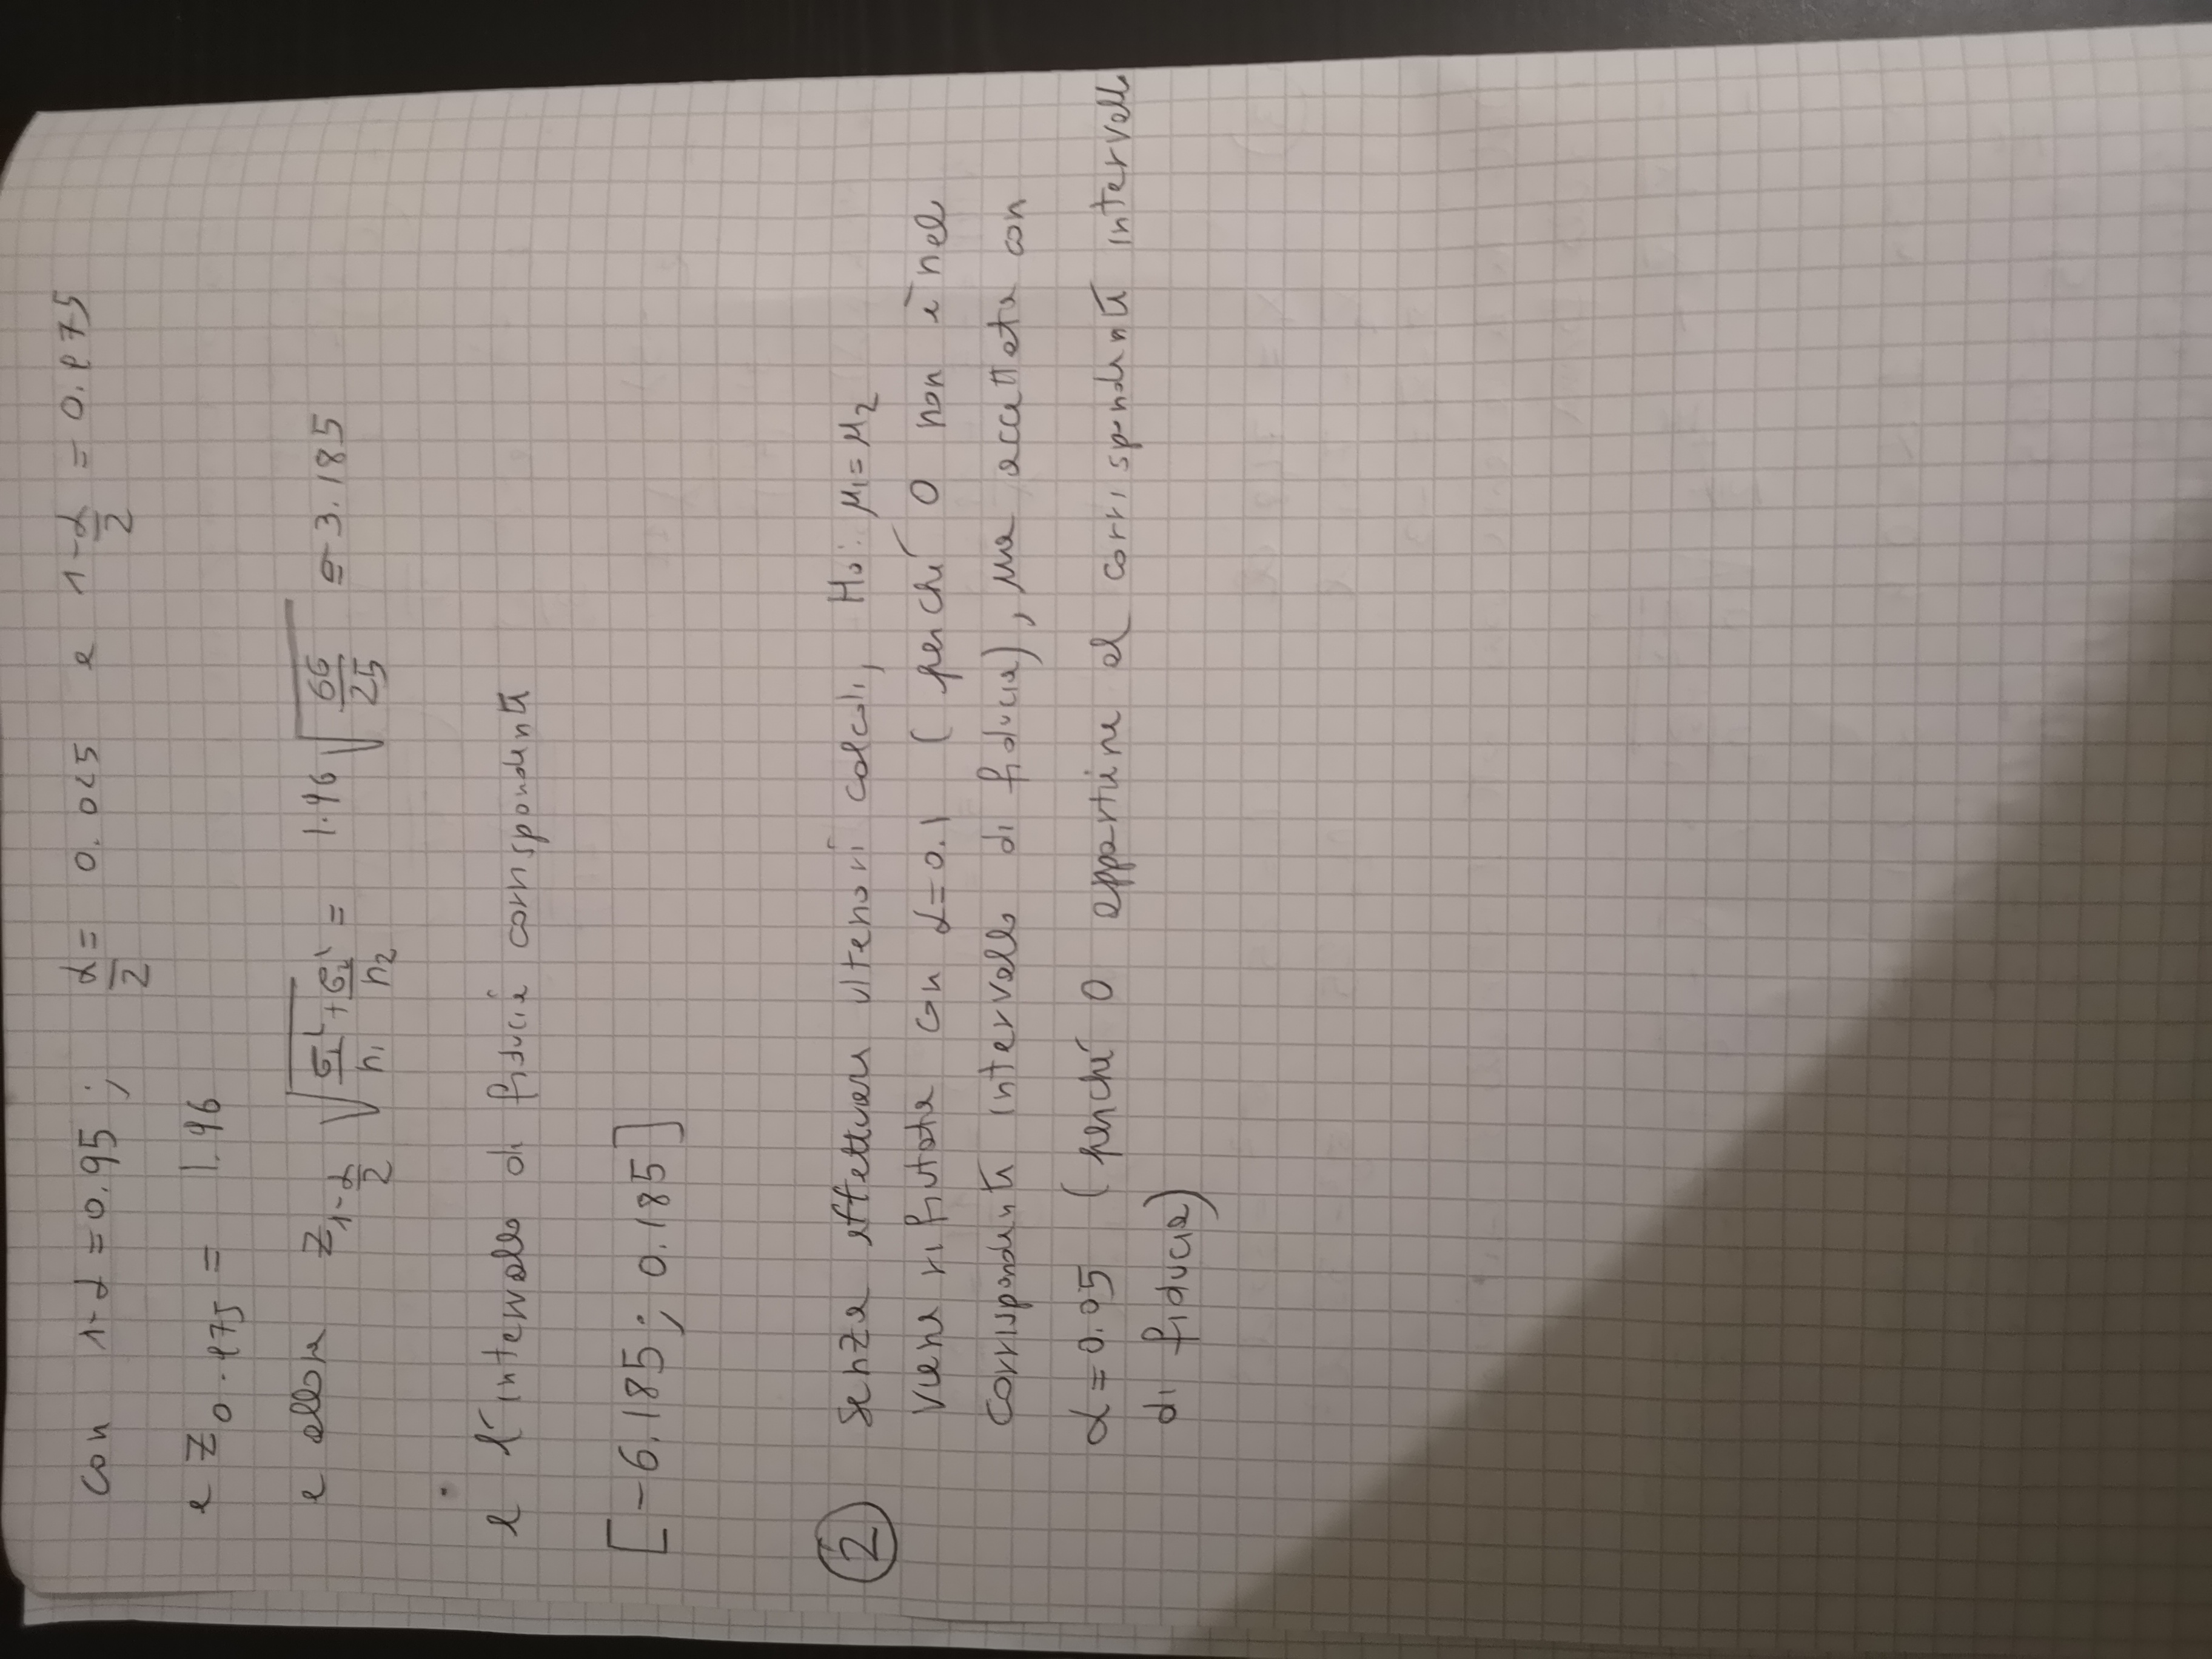 con 1-α = 0.95 ; α/2 = 0.025 e 1-α/2 = 0.975
e z_{0.975} = 1.96
e allora z_{1-α/2} √(σ₁²/n₁ + σ₂²/n₂) = 1.96 √(66/25) = 3.185
e l'intervallo di fiducia corrispondente
[-6.185; 0.185]
② senza effettuare ulteriori calcoli, H₀: μ₁ = μ₂
viene rifiutata con α = 0.1 (perché 0 non è nel
corrispondente intervallo di fiducia), ma accettata con
α = 0.05 (perché 0 appartiene al corrispondente intervallo
di fiducia)